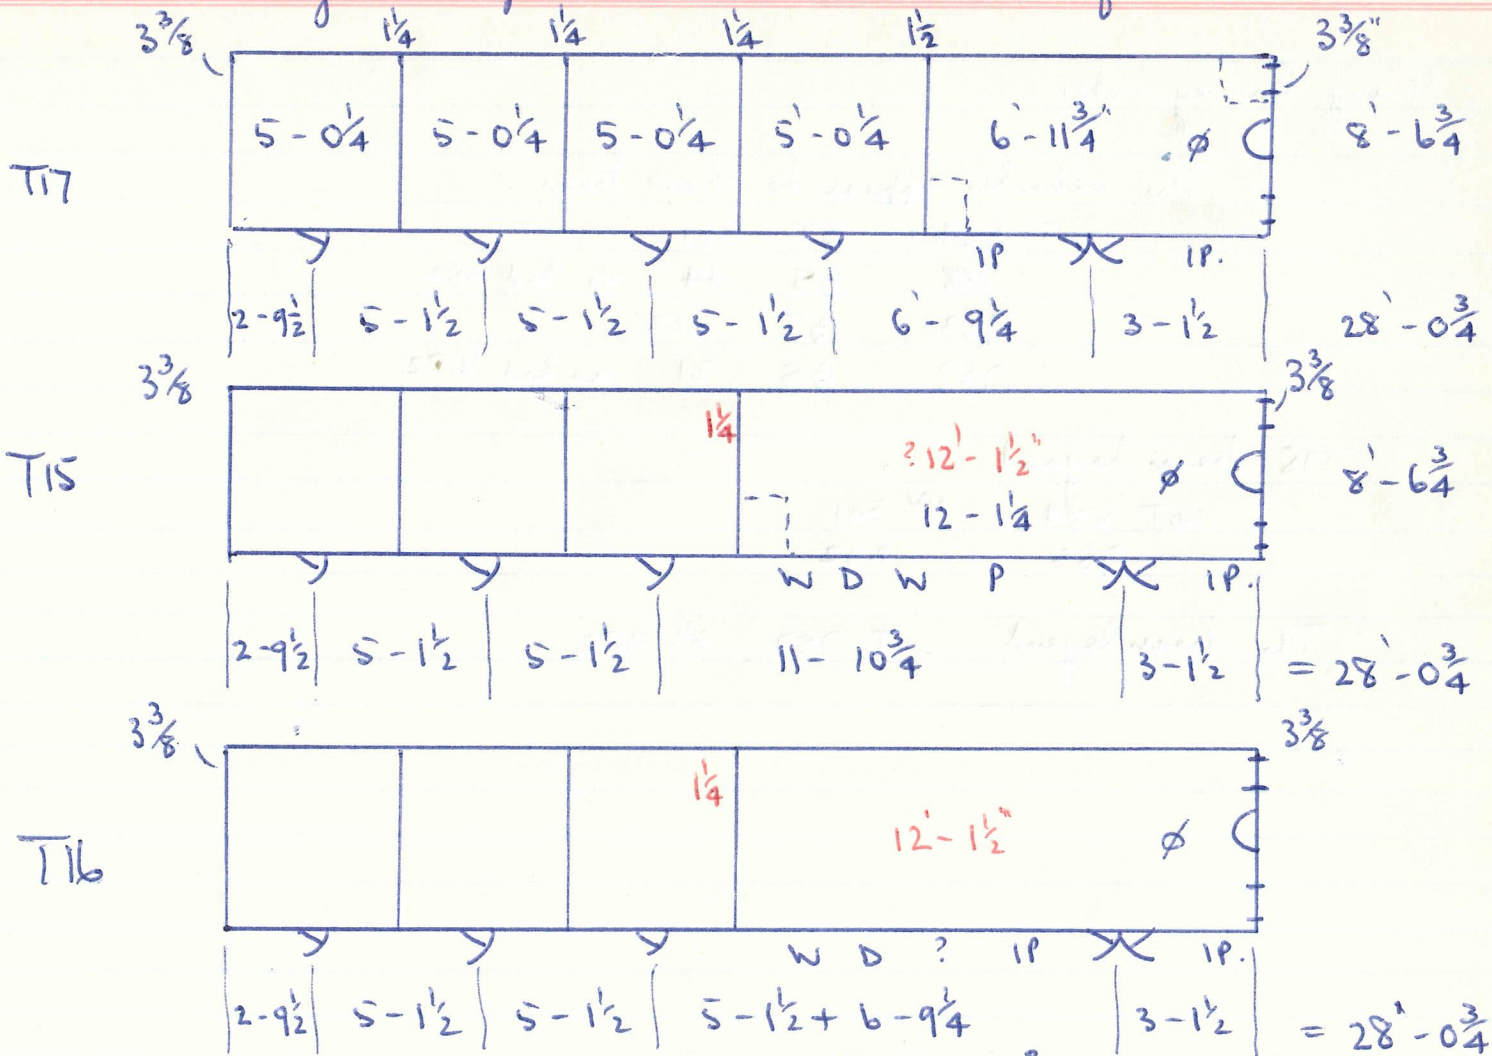 3 3/8 1 1/4 1 1/4 1 1/4 1 1/2 3 3/8"
T17 5 - 0 1/4 5 - 0 1/4 5 - 0 1/4 5' - 0 1/4 6' - 11 3/4" ø 8' - 6 3/4
IP IP.
2 - 9 1/2 5 - 1 1/2 5 - 1 1/2 5 - 1 1/2 6' - 9 1/4 3 - 1 1/2 28' - 0 3/4
3 3/8 3 3/8
1 1/4 ? 12' - 1 1/2"
T15 12 - 1 1/4 ø 8' - 6 3/4
W D W P IP.
2 - 9 1/2 5 - 1 1/2 5 - 1 1/2 11 - 10 3/4 3 - 1 1/2 = 28' - 0 3/4
3 3/8 3 3/8
1 1/4
T16 12' - 1 1/2" ø
W D ? IP IP.
2 - 9 1/2 5 - 1 1/2 5 - 1 1/2 5 - 1 1/2 + 6 - 9 1/4 3 - 1 1/2 = 28' - 0 3/4